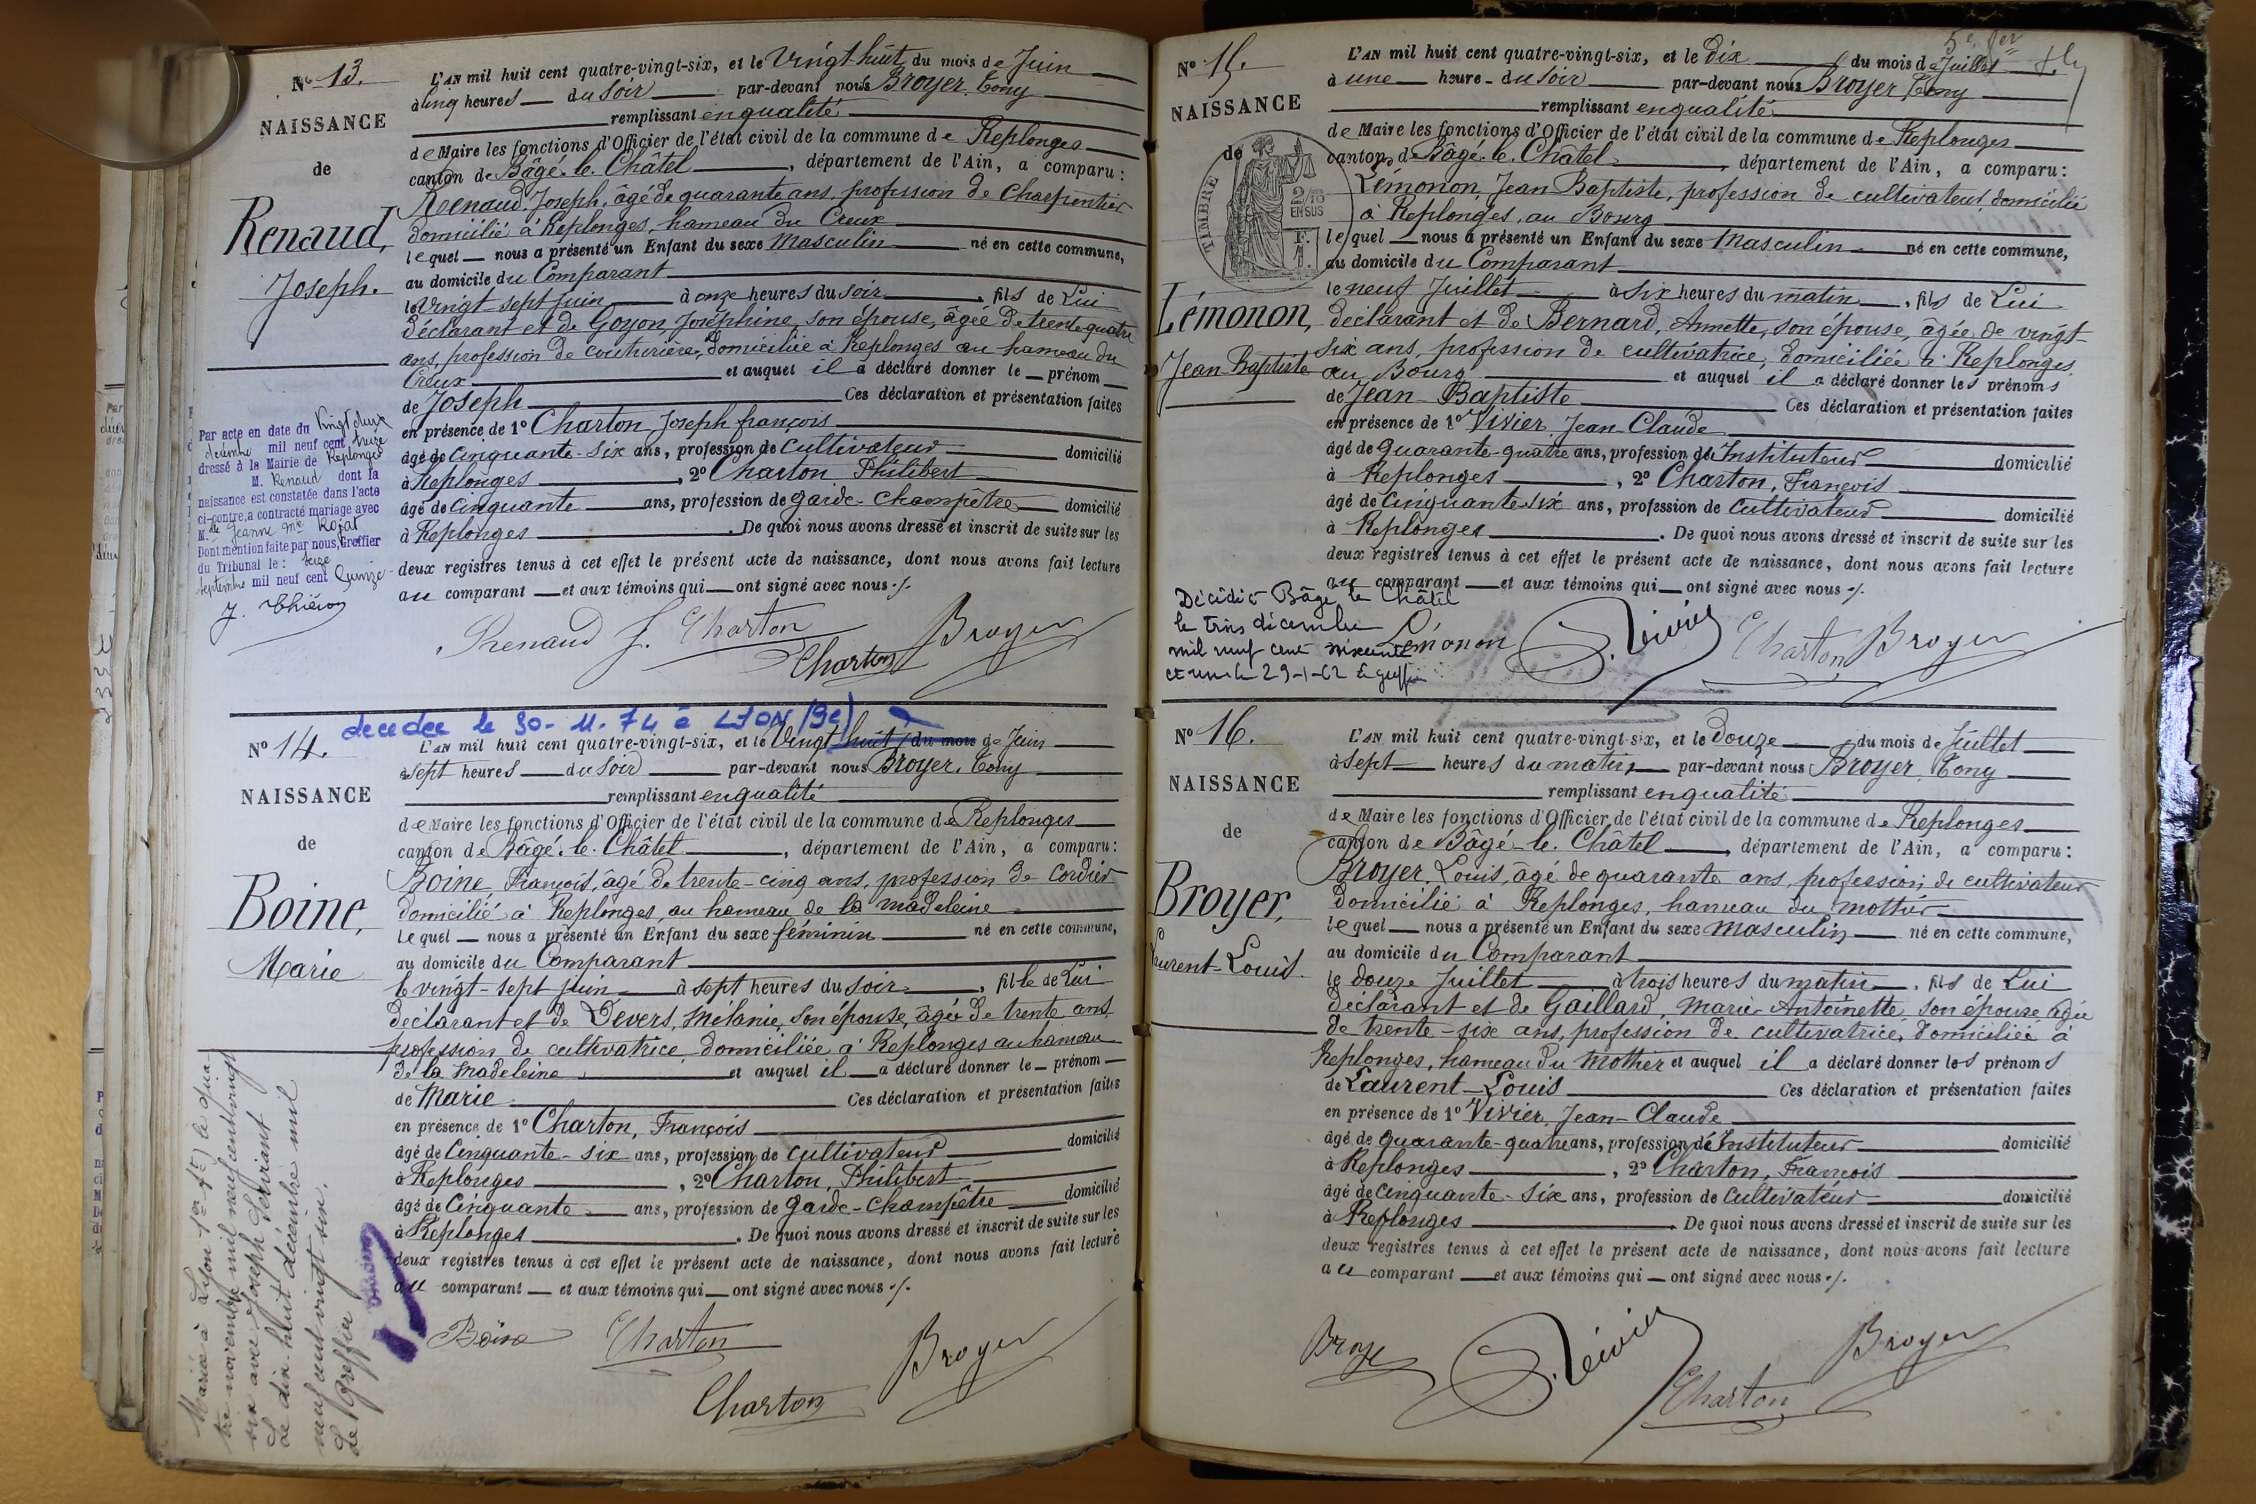 N° 13.
NAISSANCE
de
Renaud,
Joseph.
L'AN mil huit cent quatre-vingt-six, et le Vingt huit du mois de Juin
à cinq heures du soir par-devant nous Broyer, Tony
remplissant en qualité
de Maire les fonctions d'Officier de l'état civil de la commune de Replonges
canton de Bâgé-le-Châtel, département de l'Ain, a comparu:
Renaud, Joseph, âgé de quarante ans, profession de Charpentier
domicilié à Replonges, hameau du Creux
lequel nous a présenté un Enfant du sexe Masculin né en cette commune,
au domicile du Comparant
le vingt-sept juin à onze heures du soir, fils de Lui
déclarant et de Goyon, Joséphine, son épouse, âgée de trente-quatre
ans, profession de couturière, domiciliée à Replonges au hameau du
Creux et auquel il a déclaré donner le prénom
de Joseph Ces déclaration et présentation faites
en présence de 1° Charton, Joseph françois
âgé de Cinquante-six ans, profession de cultivateur domicilié
à Replonges, 2° Charton Philibert
âgé de Cinquante ans, profession de garde-champêtre domicilié
à Replonges. De quoi nous avons dressé et inscrit de suite sur les
deux registres tenus à cet effet le présent acte de naissance, dont nous avons fait lecture
au comparant et aux témoins qui ont signé avec nous ./.
Renaud J. Charton Broyer
Charton
Par acte en date du Vingt deux
décembre mil neuf cent treize
dressé à la Mairie de Replonges
M. Renaud dont la
naissance est constatée dans l'acte
ci-contre, a contracté mariage avec
M.lle Jeanne Mie Rojat
Dont mention faite par nous, Greffier
du Tribunal le: seize
septembre mil neuf cent Quinze
N° 14.
decedee le 30-11-74 à LYON (9e)
NAISSANCE
de
Boine,
Marie
L'AN mil huit cent quatre-vingt-six, et le Vingt huit du mois de Juin
à sept heures du soir par-devant nous Broyer, Tony
remplissant en qualité
de Maire les fonctions d'Officier de l'état civil de la commune de Replonges
canton de Bâgé-le-Châtel, département de l'Ain, a comparu:
Boine, François, âgé de trente-cinq ans, profession de Cordier
domicilié à Replonges, au hameau de la madeleine
Lequel nous a présenté un Enfant du sexe féminin né en cette commune,
au domicile du Comparant
le vingt-sept juin à sept heures du soir, fille de Lui
déclarant et de Devers, Mélanie, son épouse, âgée de trente ans,
profession de cultivatrice, domiciliée à Replonges au hameau
de la Madeleine et auquel il a déclaré donner le prénom
de Marie Ces déclaration et présentation faites
en présence de 1° Charton, François
âgé de Cinquante-six ans, profession de cultivateur domicilié
à Replonges, 2° Charton, Philibert
âgé de Cinquante ans, profession de garde-champêtre domicilié
à Replonges. De quoi nous avons dressé et inscrit de suite sur les
deux registres tenus à cet effet le présent acte de naissance, dont nous avons fait lecture
au comparant et aux témoins qui ont signé avec nous ./.
Boine Charton Broyer
Charton
Mariée à Lyon 1er (Rᵉ) le qua-
tre novembre mil neuf cent vingt
six avec Joseph
Le dix-huit décembre mil
neuf cent vingt six.
Le Greffier
N° 15.
NAISSANCE
de
TIMBRE
2/10
EN SUS
Lémonon,
Jean Baptiste
L'AN mil huit cent quatre-vingt-six, et le dix du mois de Juillet
à une heure du soir par-devant nous Broyer, Tony
remplissant en qualité
de Maire les fonctions d'Officier de l'état civil de la commune de Replonges
canton de Bâgé-le-Châtel, département de l'Ain, a comparu:
Lémonon, Jean Baptiste, profession de cultivateur, domicilié
à Replonges, au Bourg
lequel nous a présenté un Enfant du sexe Masculin né en cette commune,
au domicile du Comparant
le neuf Juillet à six heures du matin, fils de Lui
déclarant et de Bernard, Annette, son épouse, âgée de vingt-
six ans, profession de cultivatrice, domiciliée à Replonges
au Bourg et auquel il a déclaré donner les prénoms
de Jean Baptiste Ces déclaration et présentation faites
en présence de 1° Vivier, Jean-Claude
âgé de quarante-quatre ans, profession de Instituteur domicilié
à Replonges, 2° Charton, François
âgé de Cinquante-six ans, profession de Cultivateur domicilié
à Replonges. De quoi nous avons dressé et inscrit de suite sur les
deux registres tenus à cet effet le présent acte de naissance, dont nous avons fait lecture
au comparant et aux témoins qui ont signé avec nous ./.
Décédé à Bâgé le Châtel
le trois décembre
mil neuf cent soixante
et un le 29-1-62 Le greffier
Lémonon J. Vivier Charton Broyer
N° 16.
NAISSANCE
de
Broyer,
Laurent-Louis.
L'AN mil huit cent quatre-vingt-six, et le douze du mois de Juillet
à sept heures du matin par-devant nous Broyer, Tony
remplissant en qualité
de Maire les fonctions d'Officier de l'état civil de la commune de Replonges
canton de Bâgé-le-Châtel, département de l'Ain, a comparu:
Broyer, Louis, âgé de quarante ans, profession de cultivateur
domicilié à Replonges, hameau du mottier
lequel nous a présenté un Enfant du sexe masculin né en cette commune,
au domicile du Comparant
le douze Juillet à trois heures du matin, fils de Lui
déclarant et de Gaillard, Marie-Antoinette, son épouse âgée
de trente-six ans, profession de cultivatrice, domiciliée à
Replonges, hameau du Mottier et auquel il a déclaré donner les prénoms
de Laurent-Louis Ces déclaration et présentation faites
en présence de 1° Vivier, Jean-Claude
âgé de quarante-quatre ans, profession de Instituteur domicilié
à Replonges, 2° Charton, François
âgé de Cinquante-six ans, profession de Cultivateur domicilié
à Replonges. De quoi nous avons dressé et inscrit de suite sur les
deux registres tenus à cet effet le présent acte de naissance, dont nous avons fait lecture
au comparant et aux témoins qui ont signé avec nous ./.
Broyer J. Vivier Charton Broyer